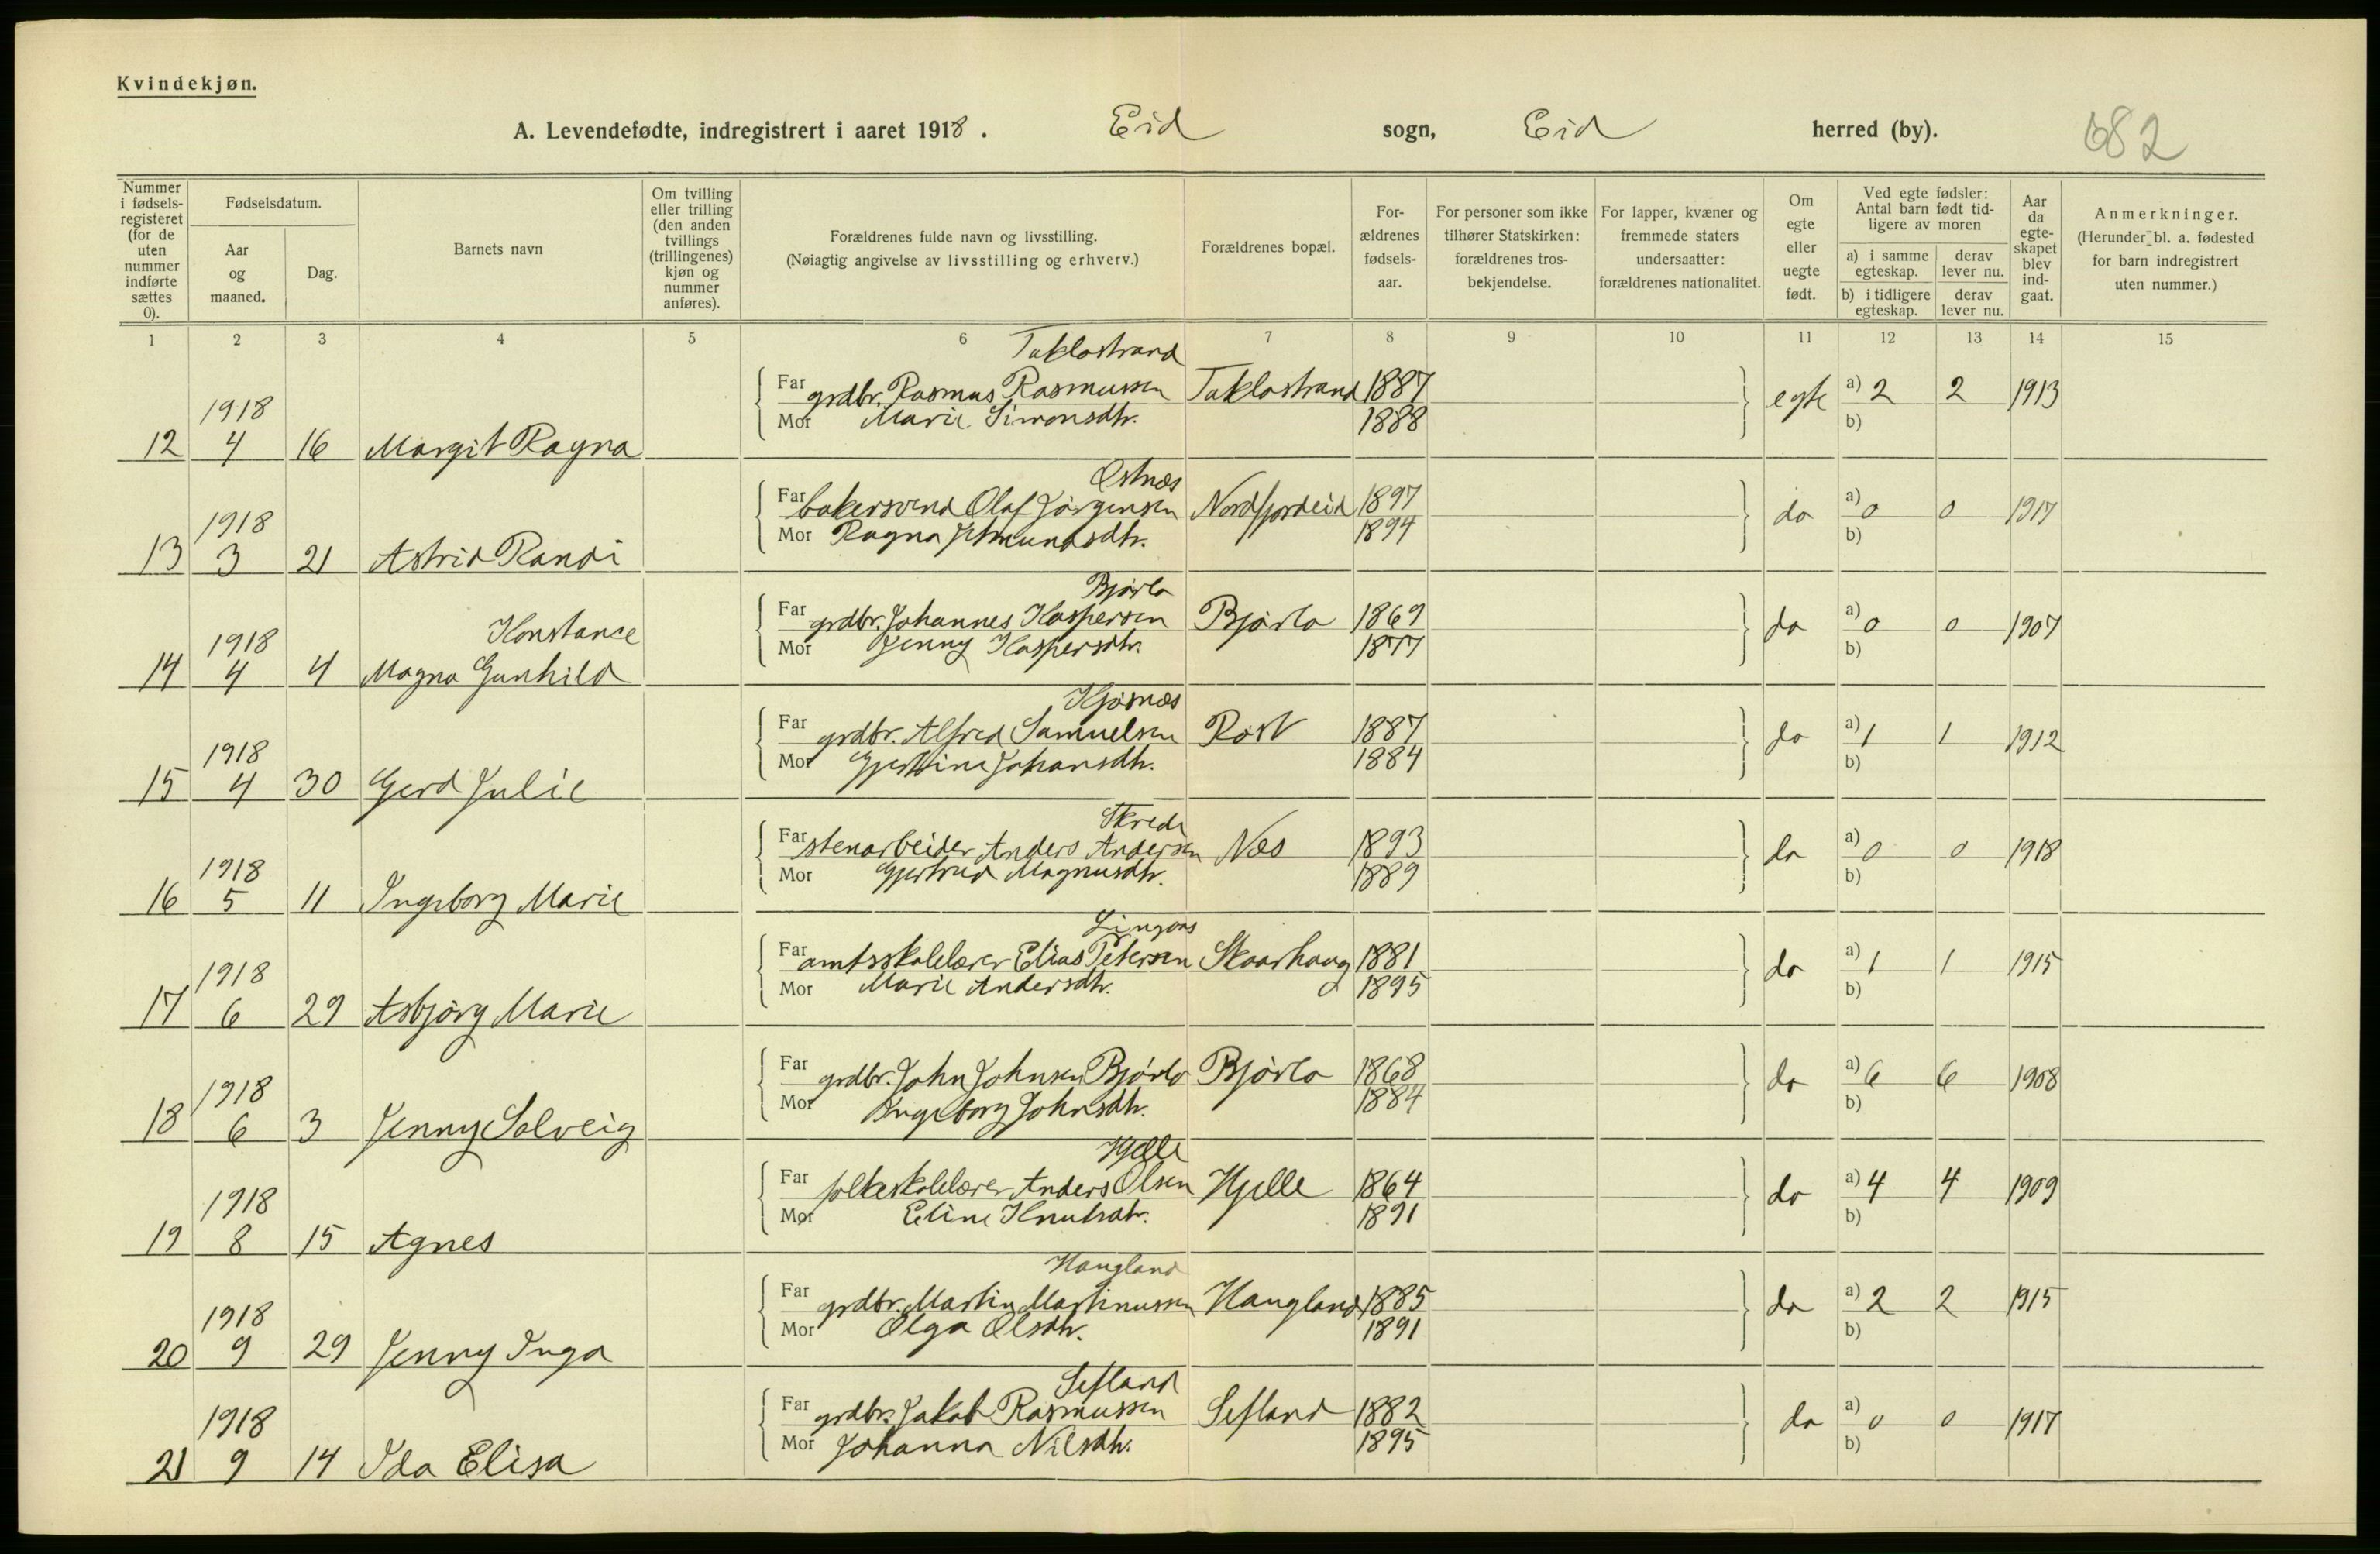 Kvindekjøn.
A. Levendefødte, indregistrert i aaret 1918. Eid sogn, Eid herred (by). 682
Nummer i fødselsregisteret (for de uten nummer indførte sættes 0). Fødselsdatum. Aar og maaned. Dag. Barnets navn Om tvilling eller trilling (den anden tvillings (trillingenes) kjøn og nummer anføres). Forældrenes fulde navn og livsstilling. (Nøiagtig angivelse av livsstilling og erhverv.) Forældrenes bopæl. Forældrenes fødselsaar. For personer som ikke tilhører Statskirken: forældrenes trosbekjendelse. For lapper, kvæner og fremmede staters undersaatter: forældrenes nationalitet. Om egte eller uegte født. Ved egte fødsler: Antal barn født tidligere av moren a) i samme egteskap. derav lever nu. b) i tidligere egteskap. derav lever nu. Aar da egteskapet blev indgaat. Anmerkninger. (Herunder bl. a. fødested for barn indregistrert uten nummer.)
1 2 3 4 5 6 7 8 9 10 11 12 13 14 15
Taklostrand
Far grdbr. Rasmus Rasmussen Taklostrand 1887 egte a) 2 2 1913
1918
Mor Marie Simonsdtr. 1888 b)
12 4 16 Margit Ragna
Østnæs
Far bakersvend Olaf Jørgensen Nordfjordeid 1897 do a) 0 0 1917
1918
Mor Ragna Ytmundsdtr. 1894 b)
13 3 21 Astrid Randi
Bjørlo
Far grdbr. Johannes Kaspersen Bjørlo 1869 do a) 0 0 1907
1918 Konstance
Mor Jenny Kaspersdtr. 1877 b)
14 4 4 Magna Gunhild
Kjøsnæs
Far grdbr. Alfred Samuelsen Røst 1887 do a) 1 1 1912
1918
Mor Gjertine Johansdtr. 1884 b)
15 4 30 Gerd Julie
Skrede
Far stenarbeider Anders Andersen Nes 1893 do a) 0 0 1918
1918
Mor Gjertrud Magnusdtr. 1889 b)
16 5 11 Ingeborg Marie
Lingaas
Far amtsskolelærer Elias Petersen Skaarhaug 1881 do a) 1 1 1915
1918
Mor Marie Andersdtr. 1895 b)
17 6 29 Asbjørg Marie
Far grdbr. John Johnsen Bjørlo Bjørlo 1868 do a) 6 6 1908
1918
Mor Ingeborg Johnsdtr. 1884 b)
18 6 3 Jenny Solveig
Hjelle
Far folkeskolelærer Anders Olsen Hjelle 1864 do a) 4 4 1909
1918
Mor Eline Knutsdtr. 1891 b)
19 8 15 Agnes
Haugland
Far grdbr. Martin Martinussen Haugland 1885 do a) 2 2 1915
1918
Mor Olga Olsdtr. 1891 b)
20 9 29 Jenny Inga
Sefland
Far grdbr. Jakob Rasmussen Sefland 1882 do a) 0 0 1917
1918
Mor Johanna Nilsdtr. 1895 b)
21 9 14 Ida Elisa